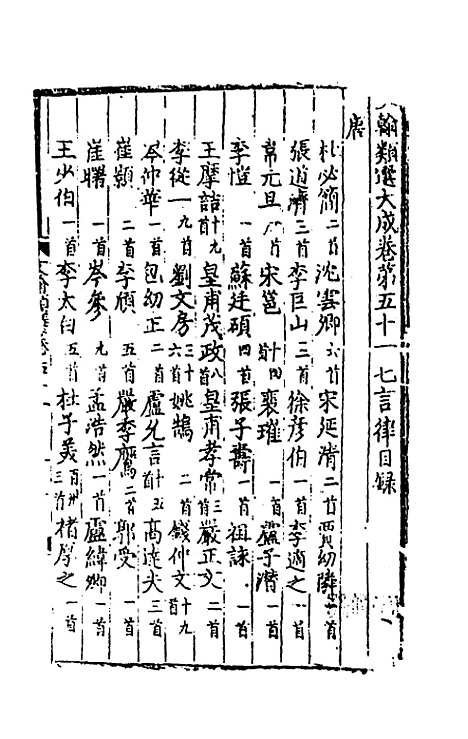 翰類選大成卷第五十一 七言律目録
唐
杜必簡二首 沈雲卿六首 宋延清二首 賈幼隣一首
張道濟三首 李巨山三首 徐彦伯一首 李適之一首
常元旦首 宋邕十四首 裴璀一首 盧子潛一首
李憕一首 蘇廷碩四首 張子壽一首 祖詠一首
王摩詰十九首 皇甫茂政八首 皇甫孝常三首 嚴正文二首
李從一九首 劉文房三十六首 姚鵠二首 錢仲文十九首
岑仲華一首 包幼正二首 盧允言十五首 高達夫三首
崔顥二首 李頎五首 嚴季鷹二首 郭受一首
崔曙一首 岑參九首 孟浩然一首 盧緯卿一首
王少伯一首 李太白五首 杜子美百卅三首 楮厚之一首